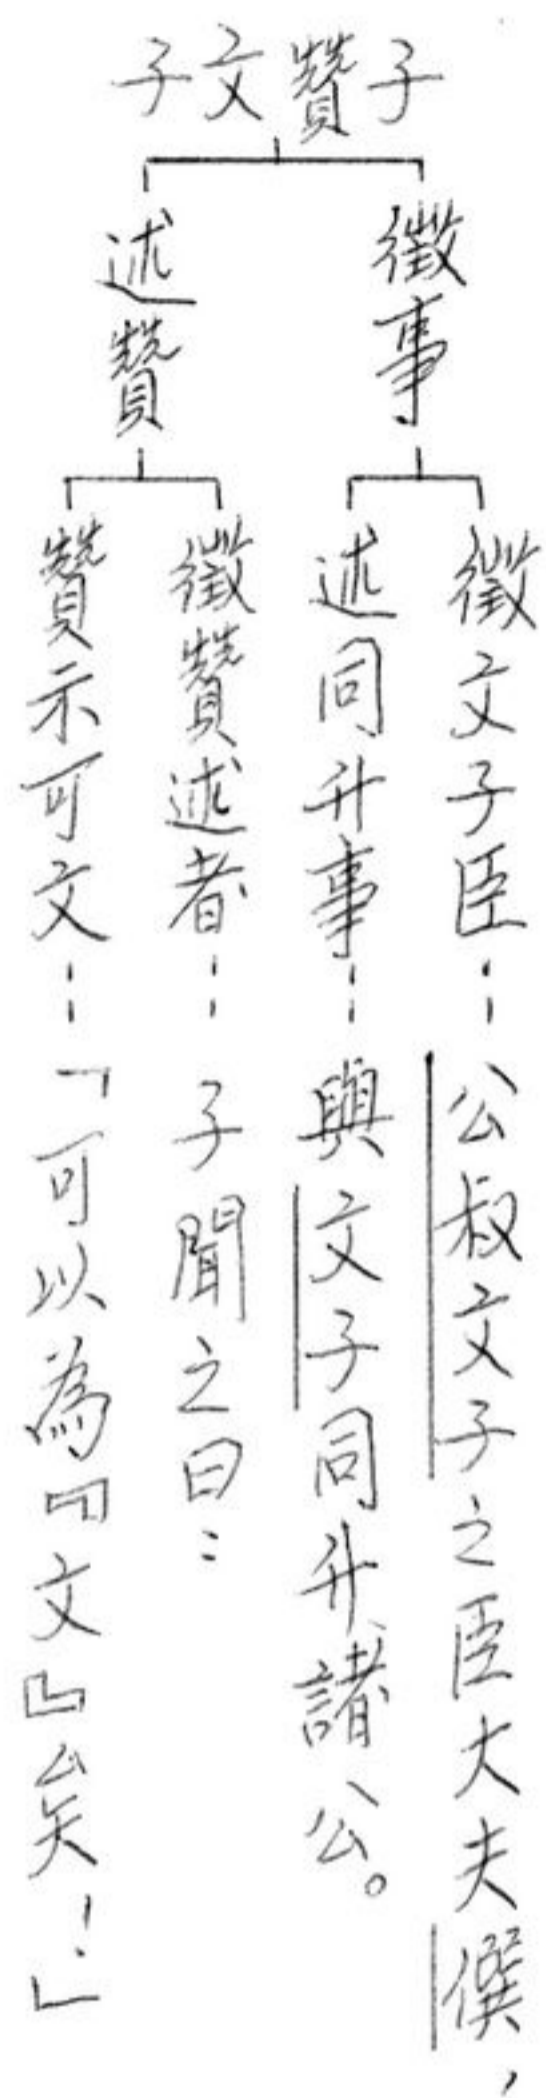 子贊文子
徵事
徵文子臣
公叔文子之臣大夫僎，
述同升事
與文子同升諸公。
述贊
徵贊述者
子聞之曰：
贊示可文
「可以為『文』矣！」